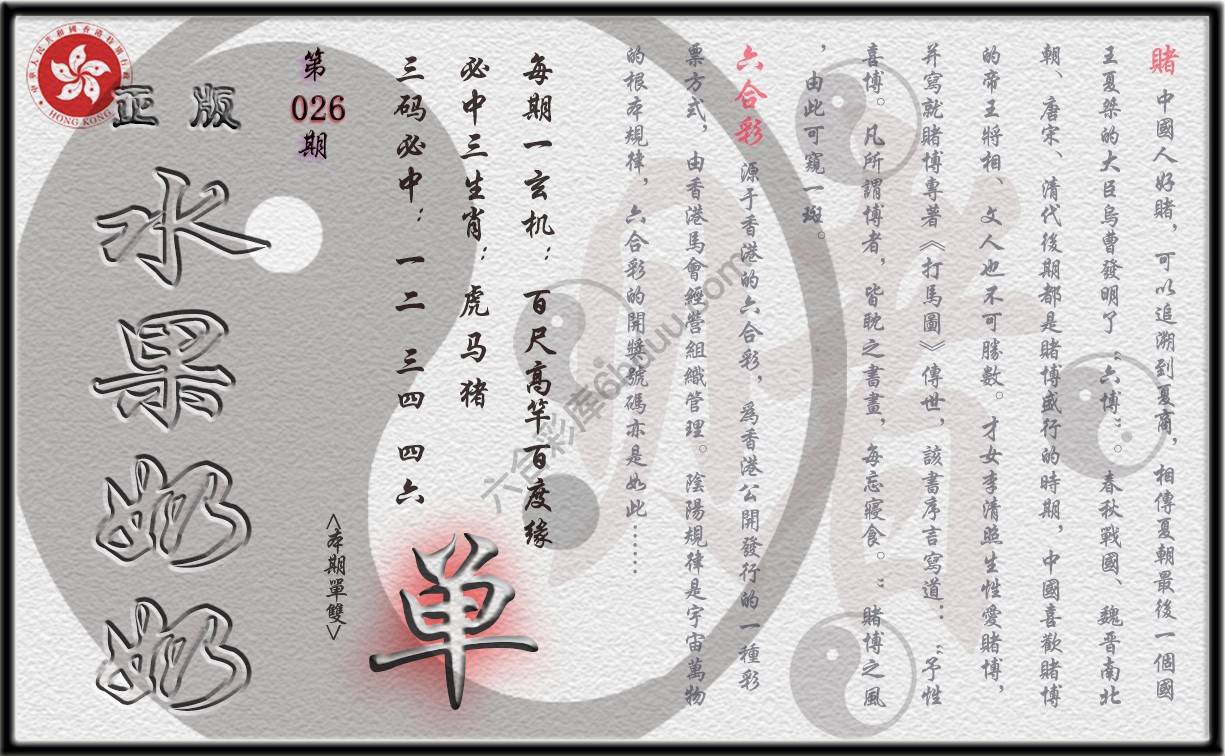 賭 中國人好賭，可以追溯到夏商，相傳夏朝最後一個國
王夏桀的大臣烏曹發明了“六博”。春秋戰國、魏晋南北
朝、唐宋、清代後期都是賭博盛行的時期，中國喜歡賭博
的帝王將相、文人也不可勝數。才女李清照生性愛賭博，
并寫就賭博專著《打馬圖》傳世，該書序言寫道：“予性
喜博。凡所謂博者，皆耽之書畫，每忘寢食。”賭博之風
，由此可窺一斑。
六合彩 源于香港的六合彩，爲香港公開發行的一種彩
票方式，由香港馬會經營組織管理。陰陽規律是宇宙萬物
的根本規律，六合彩的開獎號碼亦是如此……
每期一玄机：百尺高竿百度缘
必中三生肖：虎马猪
三码必中：一二 三四 四六
<本期單雙>
单
第
026
期
正版
水果奶奶
HONG KONG
中華人民共和國香港特別行政區
六合彩库6hduu.com